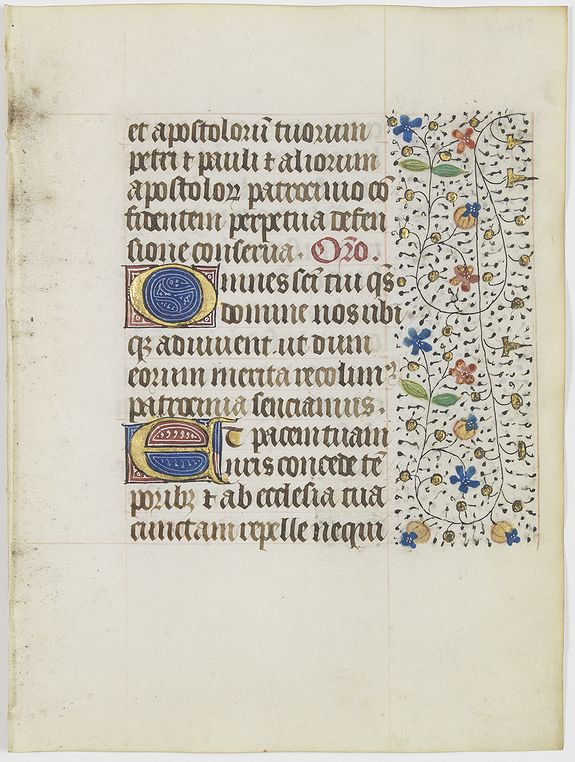 et apostoloꝝ tuorum
petri ⁊ pauli ⁊ aliorum
apostoloꝝ patrocinio cō
fidentem perpetua defen
sione conserua. Oꝛo.
Omnes scī tui qs̄
domine nos ubi
qꝫ adiuuent. ut dum
eorum merita recolimꝰ
patrocinia senciamus.
Et pacem tuam
nr̄is concede tē
poribꝫ ⁊ ab ecclesia tua
cunctam repelle nequi